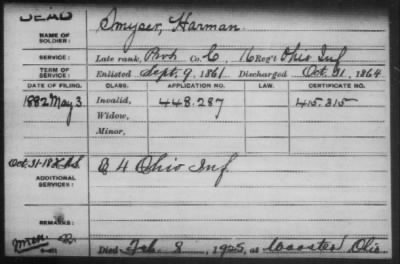 DEAD
NAME OF SOLDIER: Smyser, Harman
SERVICE: Late rank, Pvt Co. C, 16 Reg't Ohio Inf
TERM OF SERVICE: Enlisted Sept. 9, 1861 Discharged Oct. 31, 1864
DATE OF FILING. CLASS. APPLICATION NO. CERTIFICATE NO.
1882 May 3 Invalid, 448.287 415.315
Widow,
Minor,
ADDITIONAL SERVICES: B 4 Ohio Inf
REMARKS:
Died Feb. 8, 1925, at Wooster Ohio